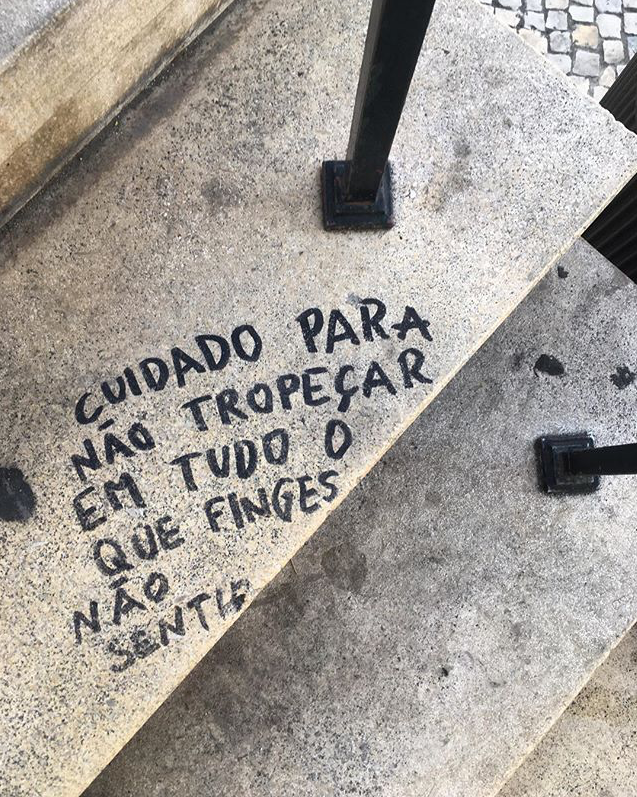 CUIDADO PARA
NÃO TROPEÇAR
EM TUDO O
QUE FINGES
NÃO
SENTIR